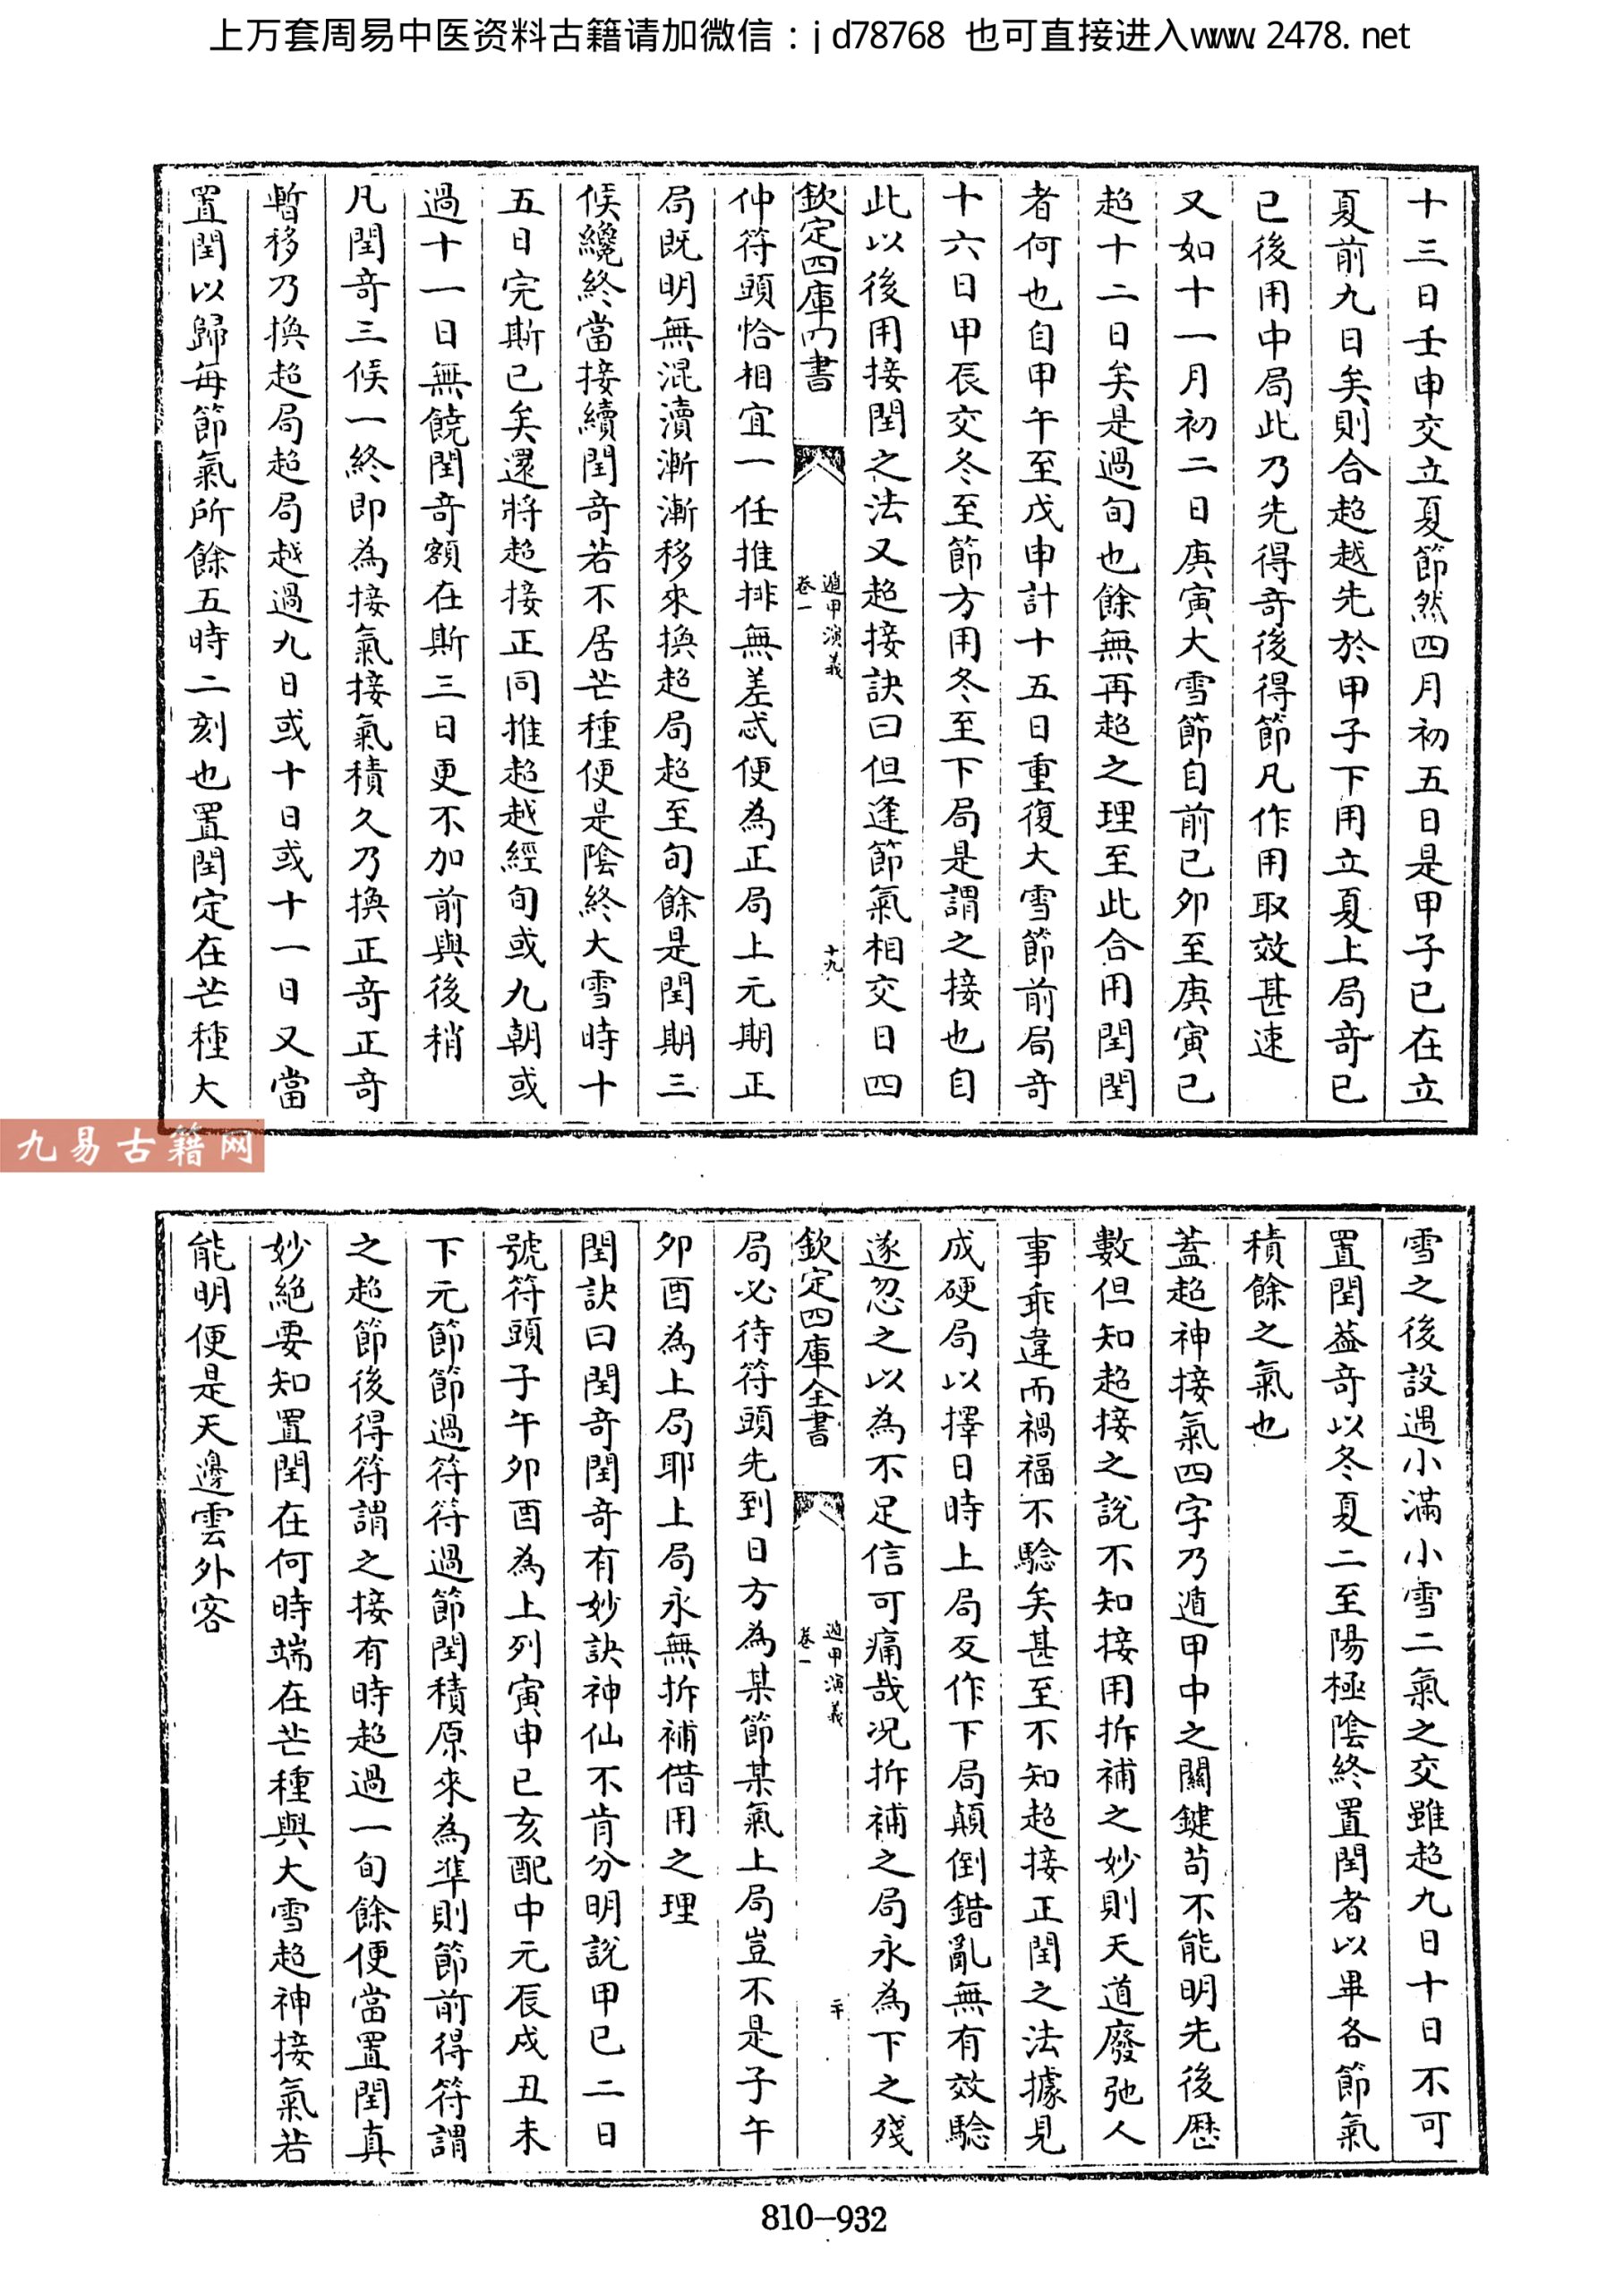 上万套周易中医资料古籍请加微信：jd78768 也可直接进入www.2478.net
十三日壬申交立夏節然四月初五日是甲子已在立
夏前九日矣則合超越先於甲子下用立夏上局奇已
已後用中局此乃先得奇後得節凡作用取效甚速
又如十一月初二日庚寅大雪節自前已夘至庚寅已
超十二日矣是過旬也餘無再超之理至此合用閏閏
者何也自甲午至戊申計十五日重復大雪節前局奇
十六日甲辰交冬至節方用冬至下局是謂之接也自
此以後用接閏之法又超接訣曰但逢節氣相交日四
欽定四庫全書
遁甲演義
卷一
十九
仲符頭恰相宜一任推排無差忒便為正局上元期正
局既明無混瀆漸漸移來換超局超至旬餘是閏期三
候纔終當接續閏奇若不居芒種便是陰終大雪時十
五日完斯已矣還將超接正同推超越經旬或九朝或
過十一日無饒閏奇額在斯三日更不加前與後稍
凡閏奇三候一終即為接氣接氣積久乃換正奇正奇
暫移乃換超局超局越過九日或十日或十一日又當
置閏以歸每節氣所餘五時二刻也置閏定在芒種大
九易古籍网
雪之後設遇小滿小雪二氣之交雖超九日十日不可
置閏葢奇以冬夏二至陽極陰終置閏者以畢各節氣
積餘之氣也
葢超神接氣四字乃遁甲中之關鍵茍不能明先後歴
數但知超接之說不知接用拆補之妙則天道廢弛人
事乖違而禍福不驗矣甚至不知超接正閏之法據見
成硬局以擇日時上局反作下局顛倒錯亂無有效驗
遂忽之以為不足信可痛哉况拆補之局永為下之殘
欽定四庫全書
遁甲演義
卷一
二十
局必待符頭先到日方為某節某氣上局豈不是子午
夘酉為上局耶上局永無拆補借用之理
閏訣曰閏奇閏奇有妙訣神仙不肯分明說甲已二日
號符頭子午夘酉為上列寅申已亥配中元辰戌丑未
下元節節過符符過節閏積原來為準則節前得符謂
之超節後得符謂之接有時超過一旬餘便當置閏真
妙絕要知置閏在何時端在芒種與大雪超神接氣若
能明便是天邊雲外客
810-932